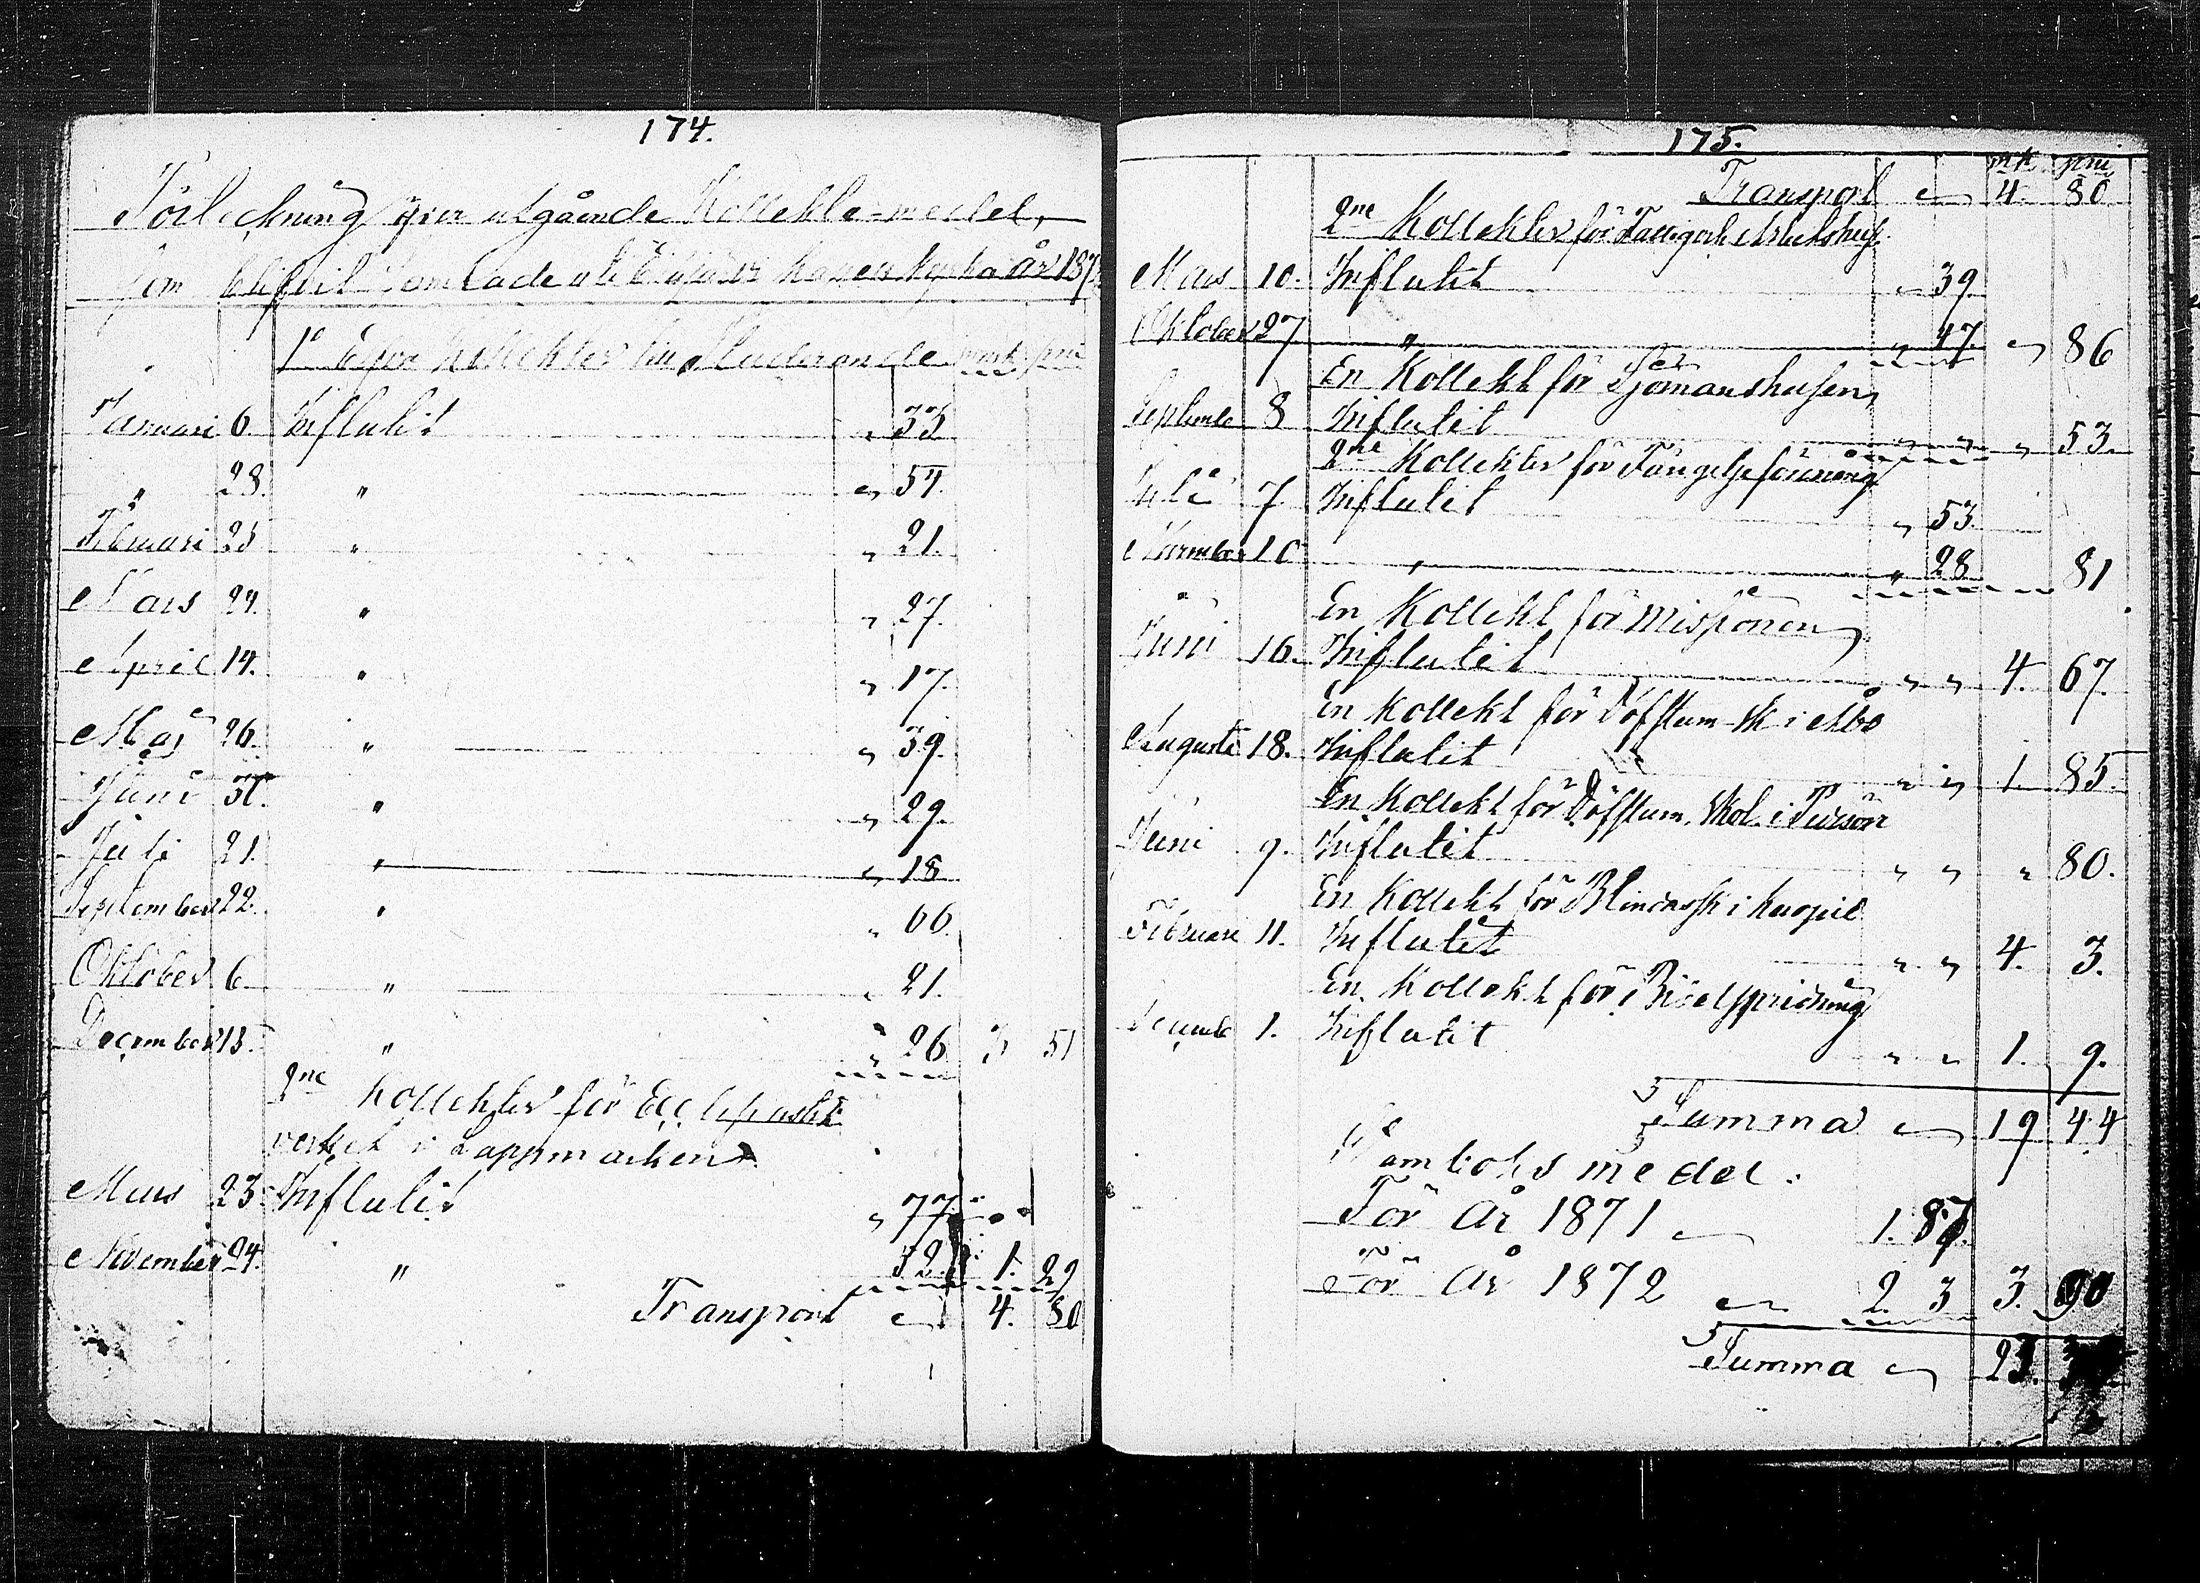 174.
Förteckning öfver utgående Kollekte-medel,
som blifvit samlade uti kyrka år 187
1o Kollekter till Studerande mrk pni
Januari 6. Influtit " 33
" 28. " " 54.
Februari 25 " " 21.
Mars 24. " " 27.
April 14. " " 17.
Maj 26. " " 39.
Juni " " 29.
Juli 21. " " 18
September 22. " " 66.
Oktober 6 " " 21.
December 13. " " 26 3 51
2ne Kollekter för Ecclesiastik
verket i Lappmarken
Mars 23. Influtit " 77.
November 24. " 52. 1. 29
Transport " 4. 80
175.
mk pni
Transport " 4. 80
2ne Kollekter för Fattig och Arbetshus
Mars 10. Influtit " 39.
Oktober 27 " " 47. " 86
En Kollekt för Sjömanshusen
Septembe 8 Influtit " " " 53.
2ne Kollekter för Fängelseförening
Juli 7 Influtit " 53.
November 10 " " 28 81
En Kollekt för Missionen
Juni 16. Influtit " " 4. 67.
En Kollekt för Döfstum-sk i Åbo
Augusti 18. Influtit " " 1. 85.
En Kollekt för Döfstum. Skol. i
Juni 9. Influtit " " " 80.
En Kollekt för Blindessk i Kuopio
Februari 11. Influtit " " 4. 3.
En Kollekt för Bibelspridning
Decembe 1. Influtit " " 1. 9.
Summa " 19 44
Stamboks medel.
För År 1871 " 1. 87.
För År 1872 " 2. 3 3. 90
Summa " 23.